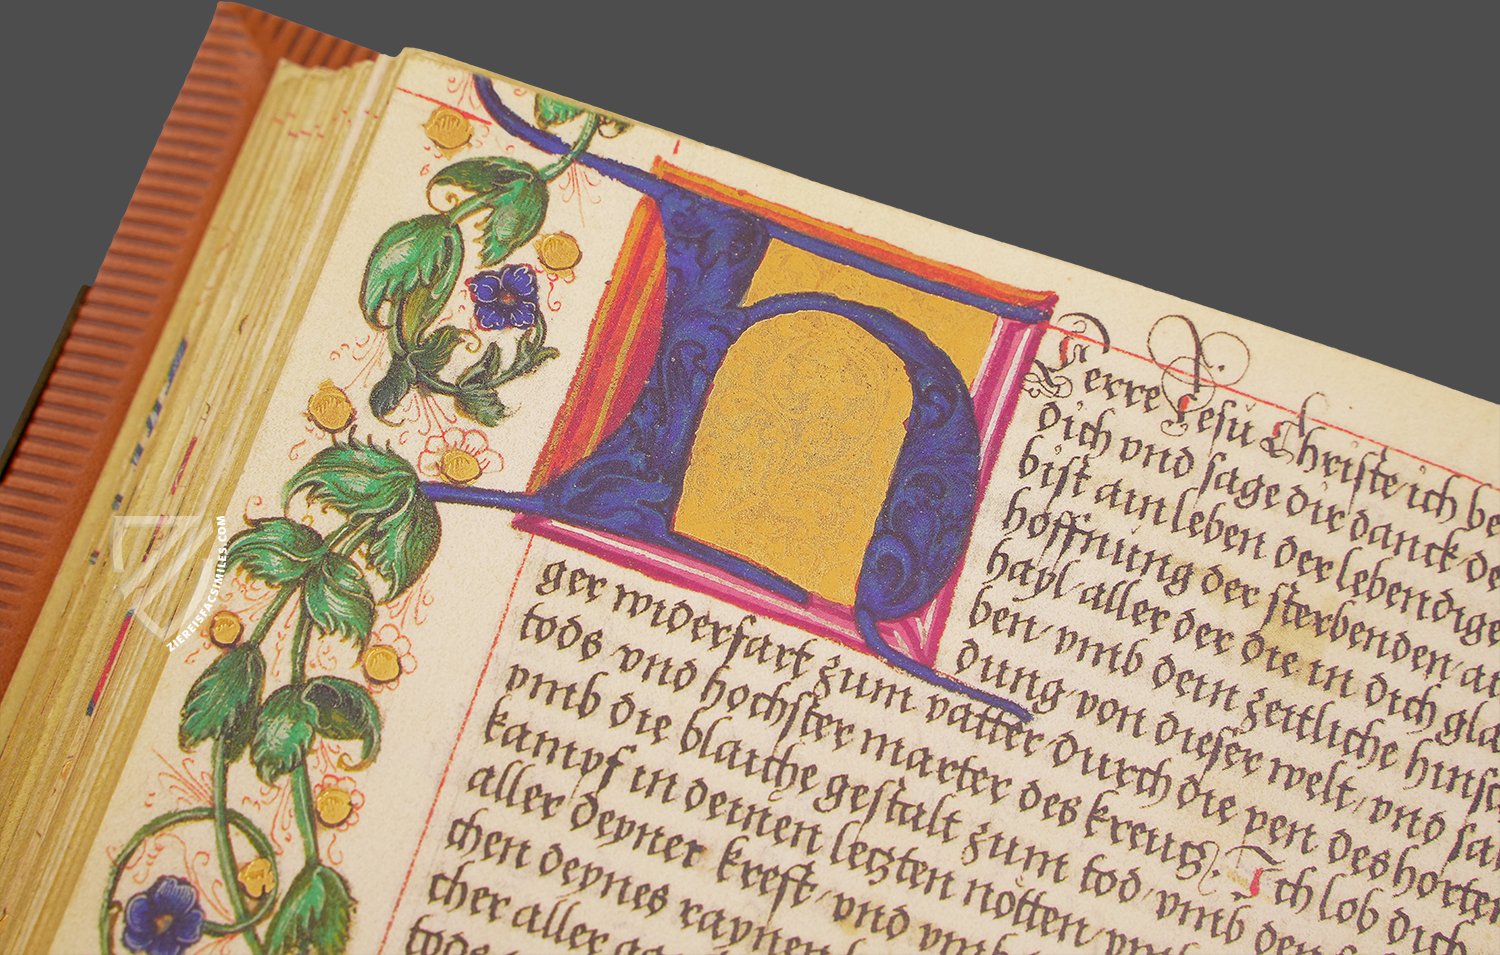 hErre Jesu Christe ich be
dich vnd sage dir danck de
bist ain leben der lebendige
hoffnung der sterbenden/
hayl/ aller der die in dich gla
ben/ vmb dein zeitliche hinsc
dung/ von dieser welt/ vnd sa
ger widerfart zum vatter durch die pen des horten
tods vnd hochster marter des kreutz. Ich lob dich
vmb die blaiche gestalt zum tod/ vmb den
kampf in deinen letzten nötten/ vmb
aller deyner kreft/ vnd vmb
chen deynes raynen
cher aller
tods
ZIEREISFACSIMILES.COM